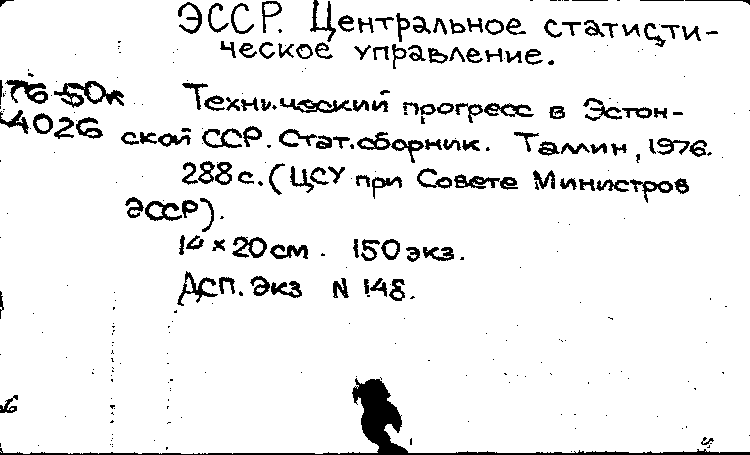 ЭССР. Центральное статисти-
ческое управление.
76-50к Технический прогресс в Эстон-
4026 ской ССР. Стат.сборник. Таллин, 1976.
288 с. (ЦСУ при Совете Министров
ЭССР).
14 × 20 см. 150 экз.
ДСП. Экз N 148.